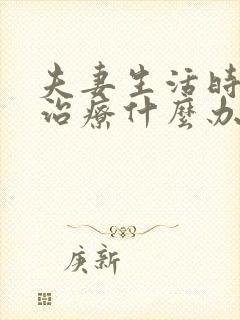 夫妻生活時
治療什麼办
庚新